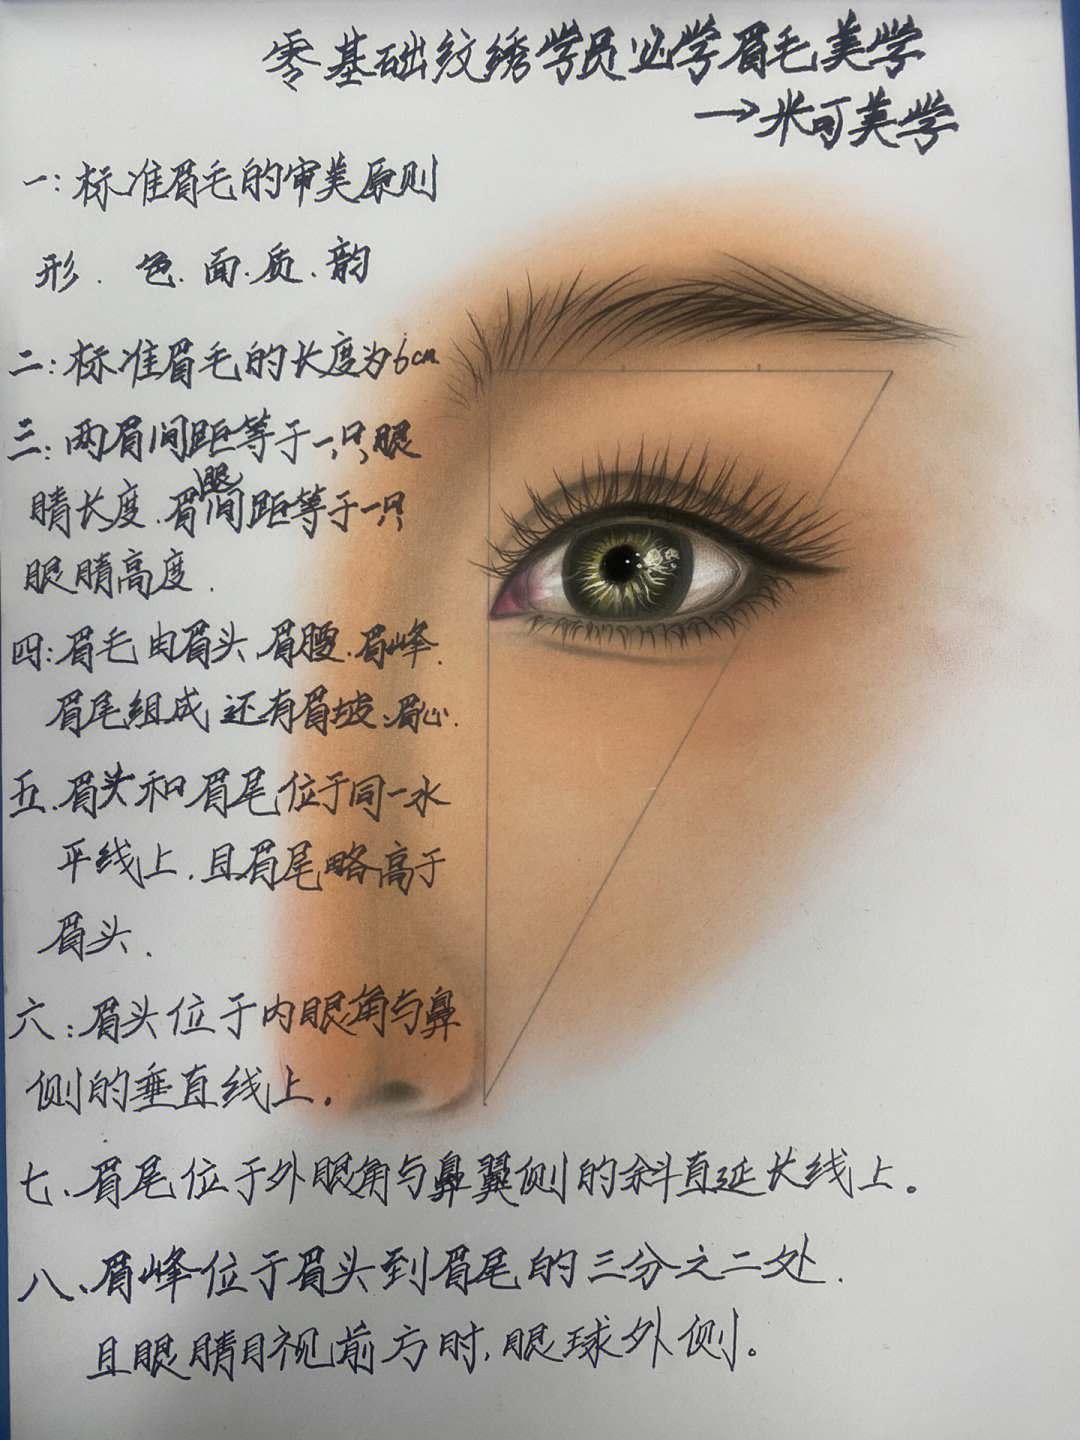 零基础纹绣学员必学眉毛美学
→米可美学
一:标准眉毛的审美原则
形.色.面.质.韵
二:标准眉毛的长度为6cm
三:两眉间距等于一只眼
睛长度.眉眼间距等于一只
眼睛高度.
四:眉毛由眉头.眉腰.眉峰.
眉尾组成,还有眉坡.眉心.
五.眉头和眉尾位于同一水
平线上.且眉尾略高于
眉头.
六:眉头位于内眼角与鼻
侧的垂直线上.
七、眉尾位于外眼角与鼻翼侧的斜直延长线上。
八、眉峰位于眉头到眉尾的三分之二处.
且眼睛目视前方时,眼球外侧。